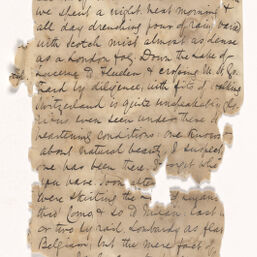 we spent a night. Next morning &
all day drenching pour of rain, varied
with Scotch mist almost as dense
as a London fog. Down the Lake of
Lucerne to Fluelen & crossing the St. Go
hard by diligence, with fits of
Switzerland is quite unspeakably glo
rious even seen under these
heartening conditions. One knows
about natural beauty, I suspect
one has been there. I forget whe
you have. Soon
were skirting the Lugano
then Como, & so to Milan. Last
or two by rail. Lombardy as flat
Belgium; but the mere fact of